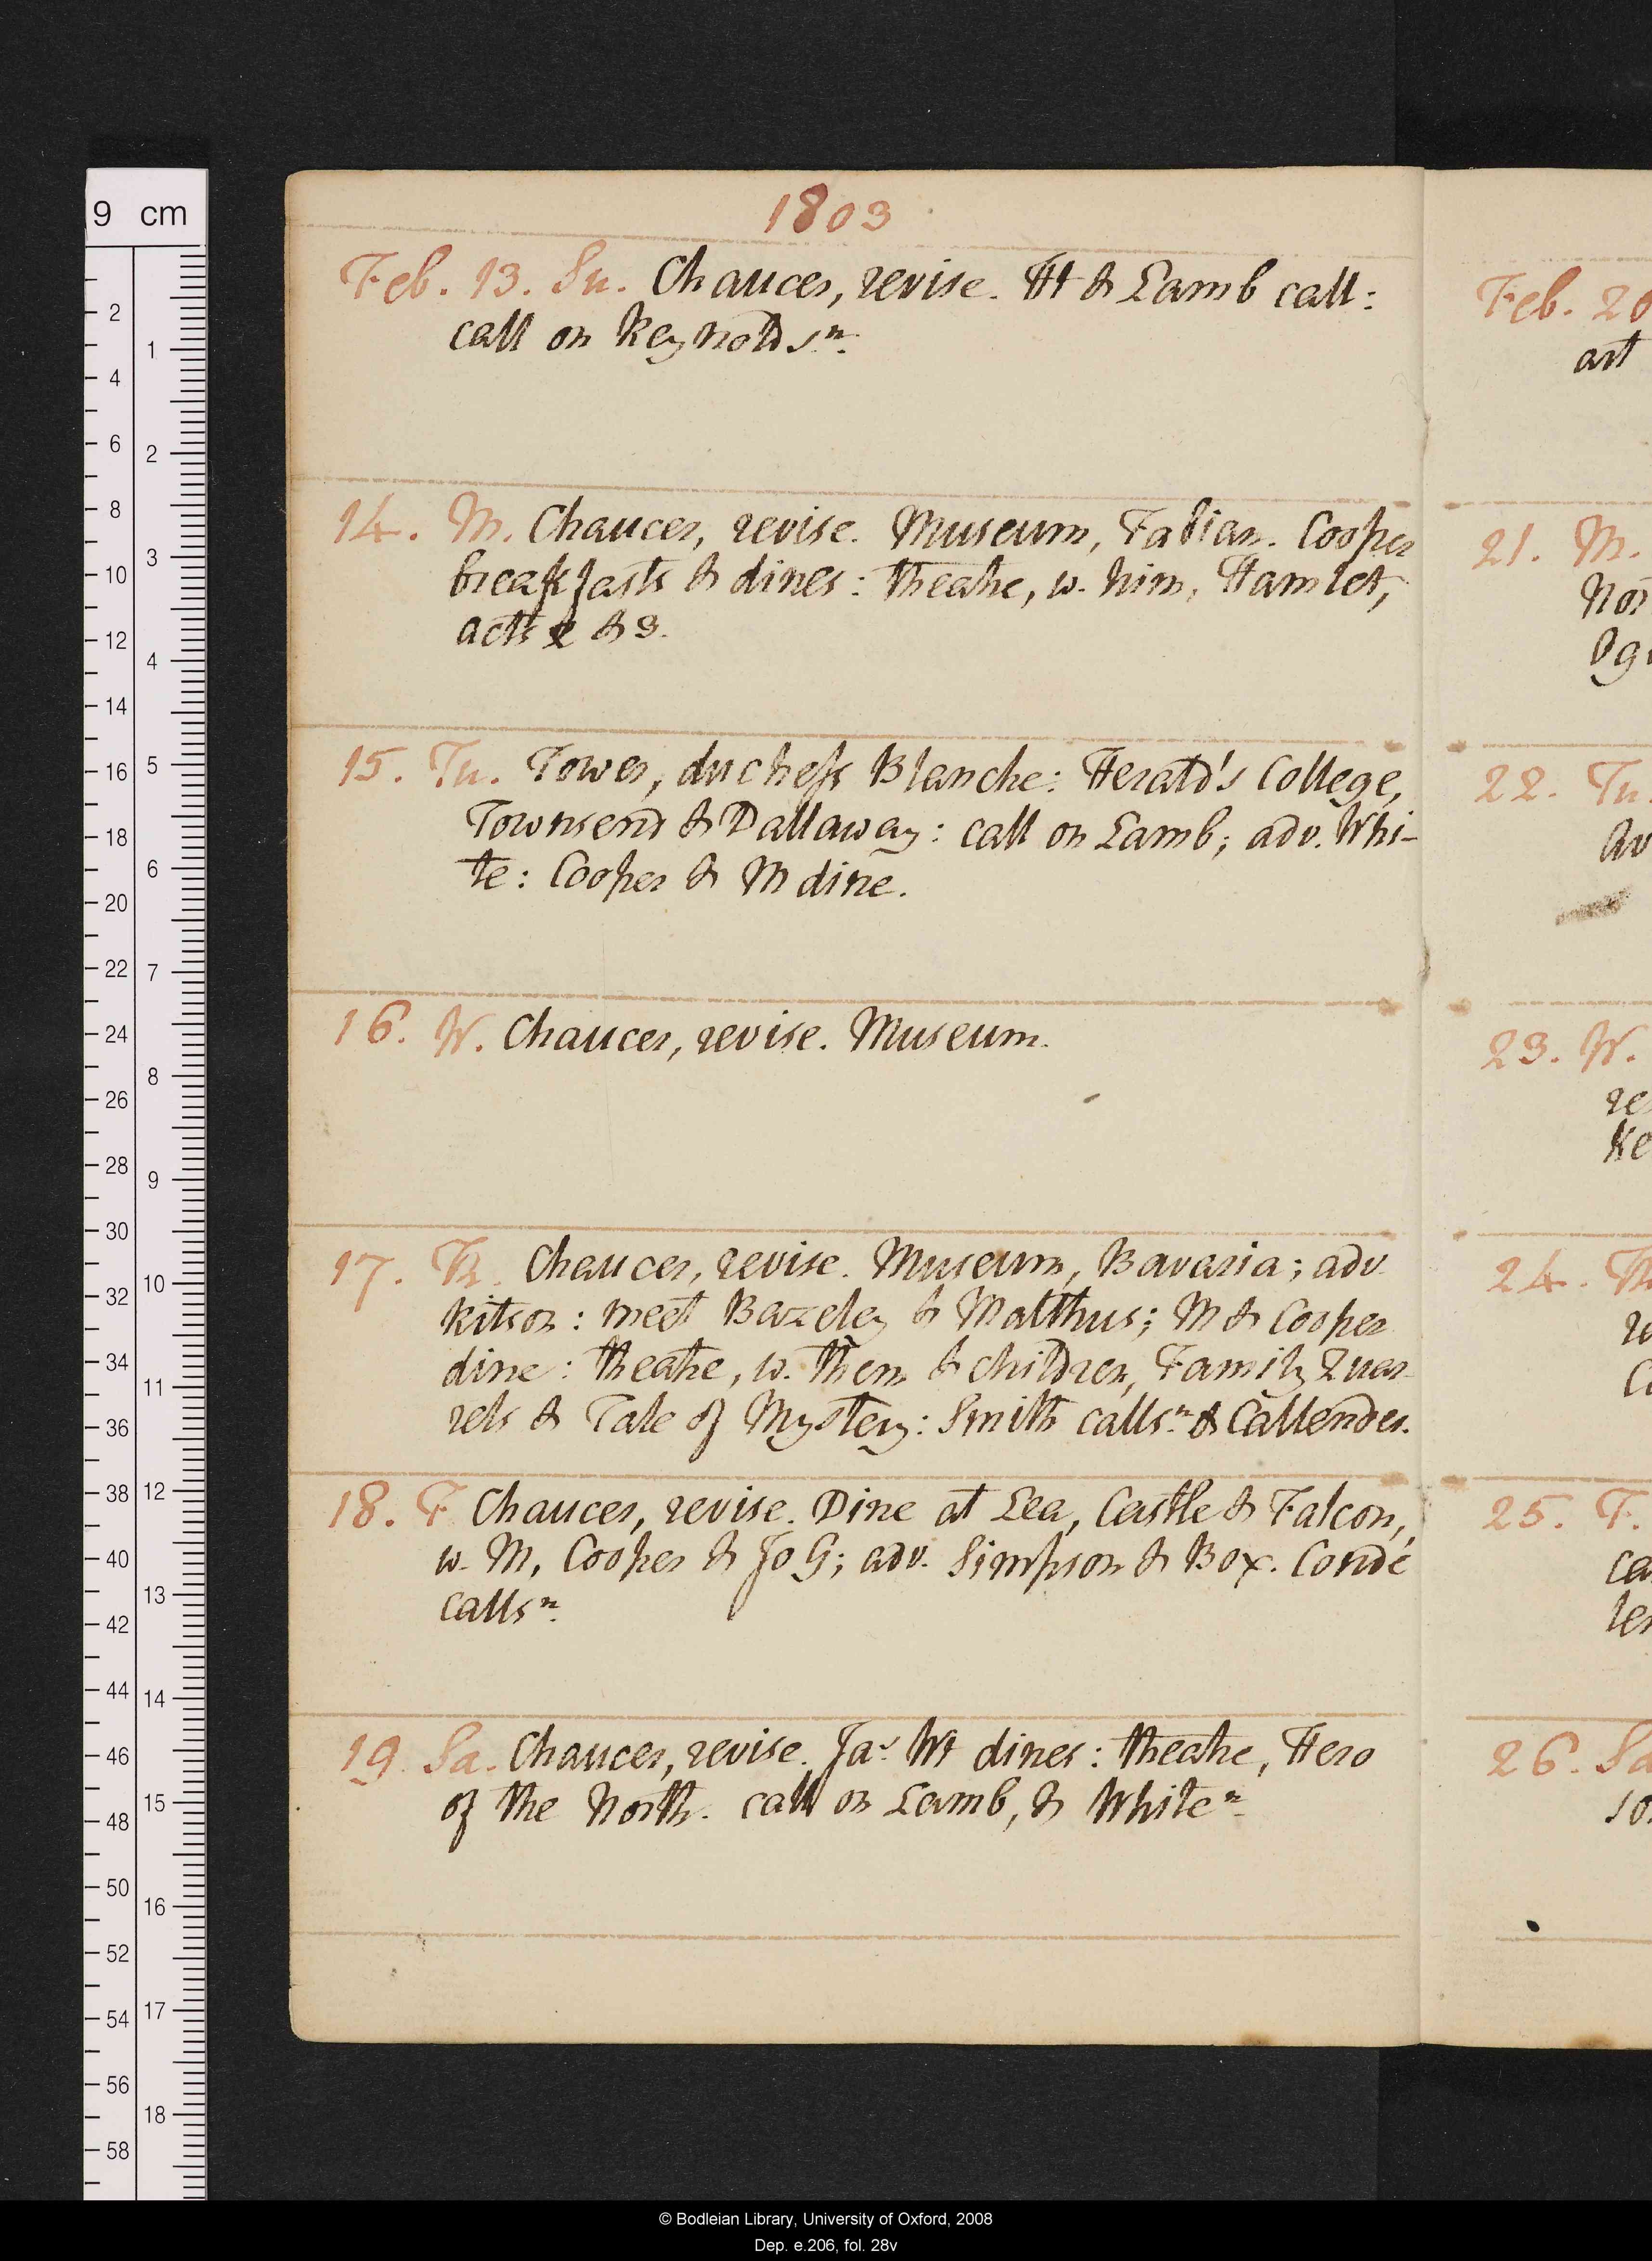 1803
Feb. 13. Su. Chaucer, revise. Ht & Lamb call:
call on Reynolds n.
14. M. Chaucer, revise. Museum, Fabian. Cooper
breakfasts & dines: theatre, w. him, Hamlet,
acts 2 & 3.
15. Tu. Tower, duchess Blanche: Herald's College,
Townsend & Dallaway: call on Lamb; adv. Whi-
te: Cooper & M dine.
16. W. Chaucer, revise. Museum.
17. Th. Chaucer, revise. Museum, Bavaria; adv.
Kitson: meet Bazeley & Malthus; M & Cooper
dine: theatre, w. them & children, Family Quar-
rels & Tale of Mystery: Smith calls n. & Callender.
18. F Chaucer, revise. Dine at Lea, Castle & Falcon,
w. M, Cooper & Jo G; adv. Simpson & Box. Condé
calls n.
19. Sa. Chaucer, revise. Jas Wt dines: theatre, Hero
of the North. call on Lamb, & White n.
Feb. 20
art
21. M.
Nor
Ogi
22. Tu.
av
23. W.
re
Ke
24. Th
25. F.
ca
ler
26. Sa
so
9 cm
2
4
6
8
10
12
14
16
18
20
22
24
26
28
30
32
34
36
38
40
42
44
46
48
50
52
54
56
58
1
2
3
4
5
6
7
8
9
10
11
12
13
14
15
16
17
18
© Bodleian Library, University of Oxford, 2008
Dep. e.206, fol. 28v